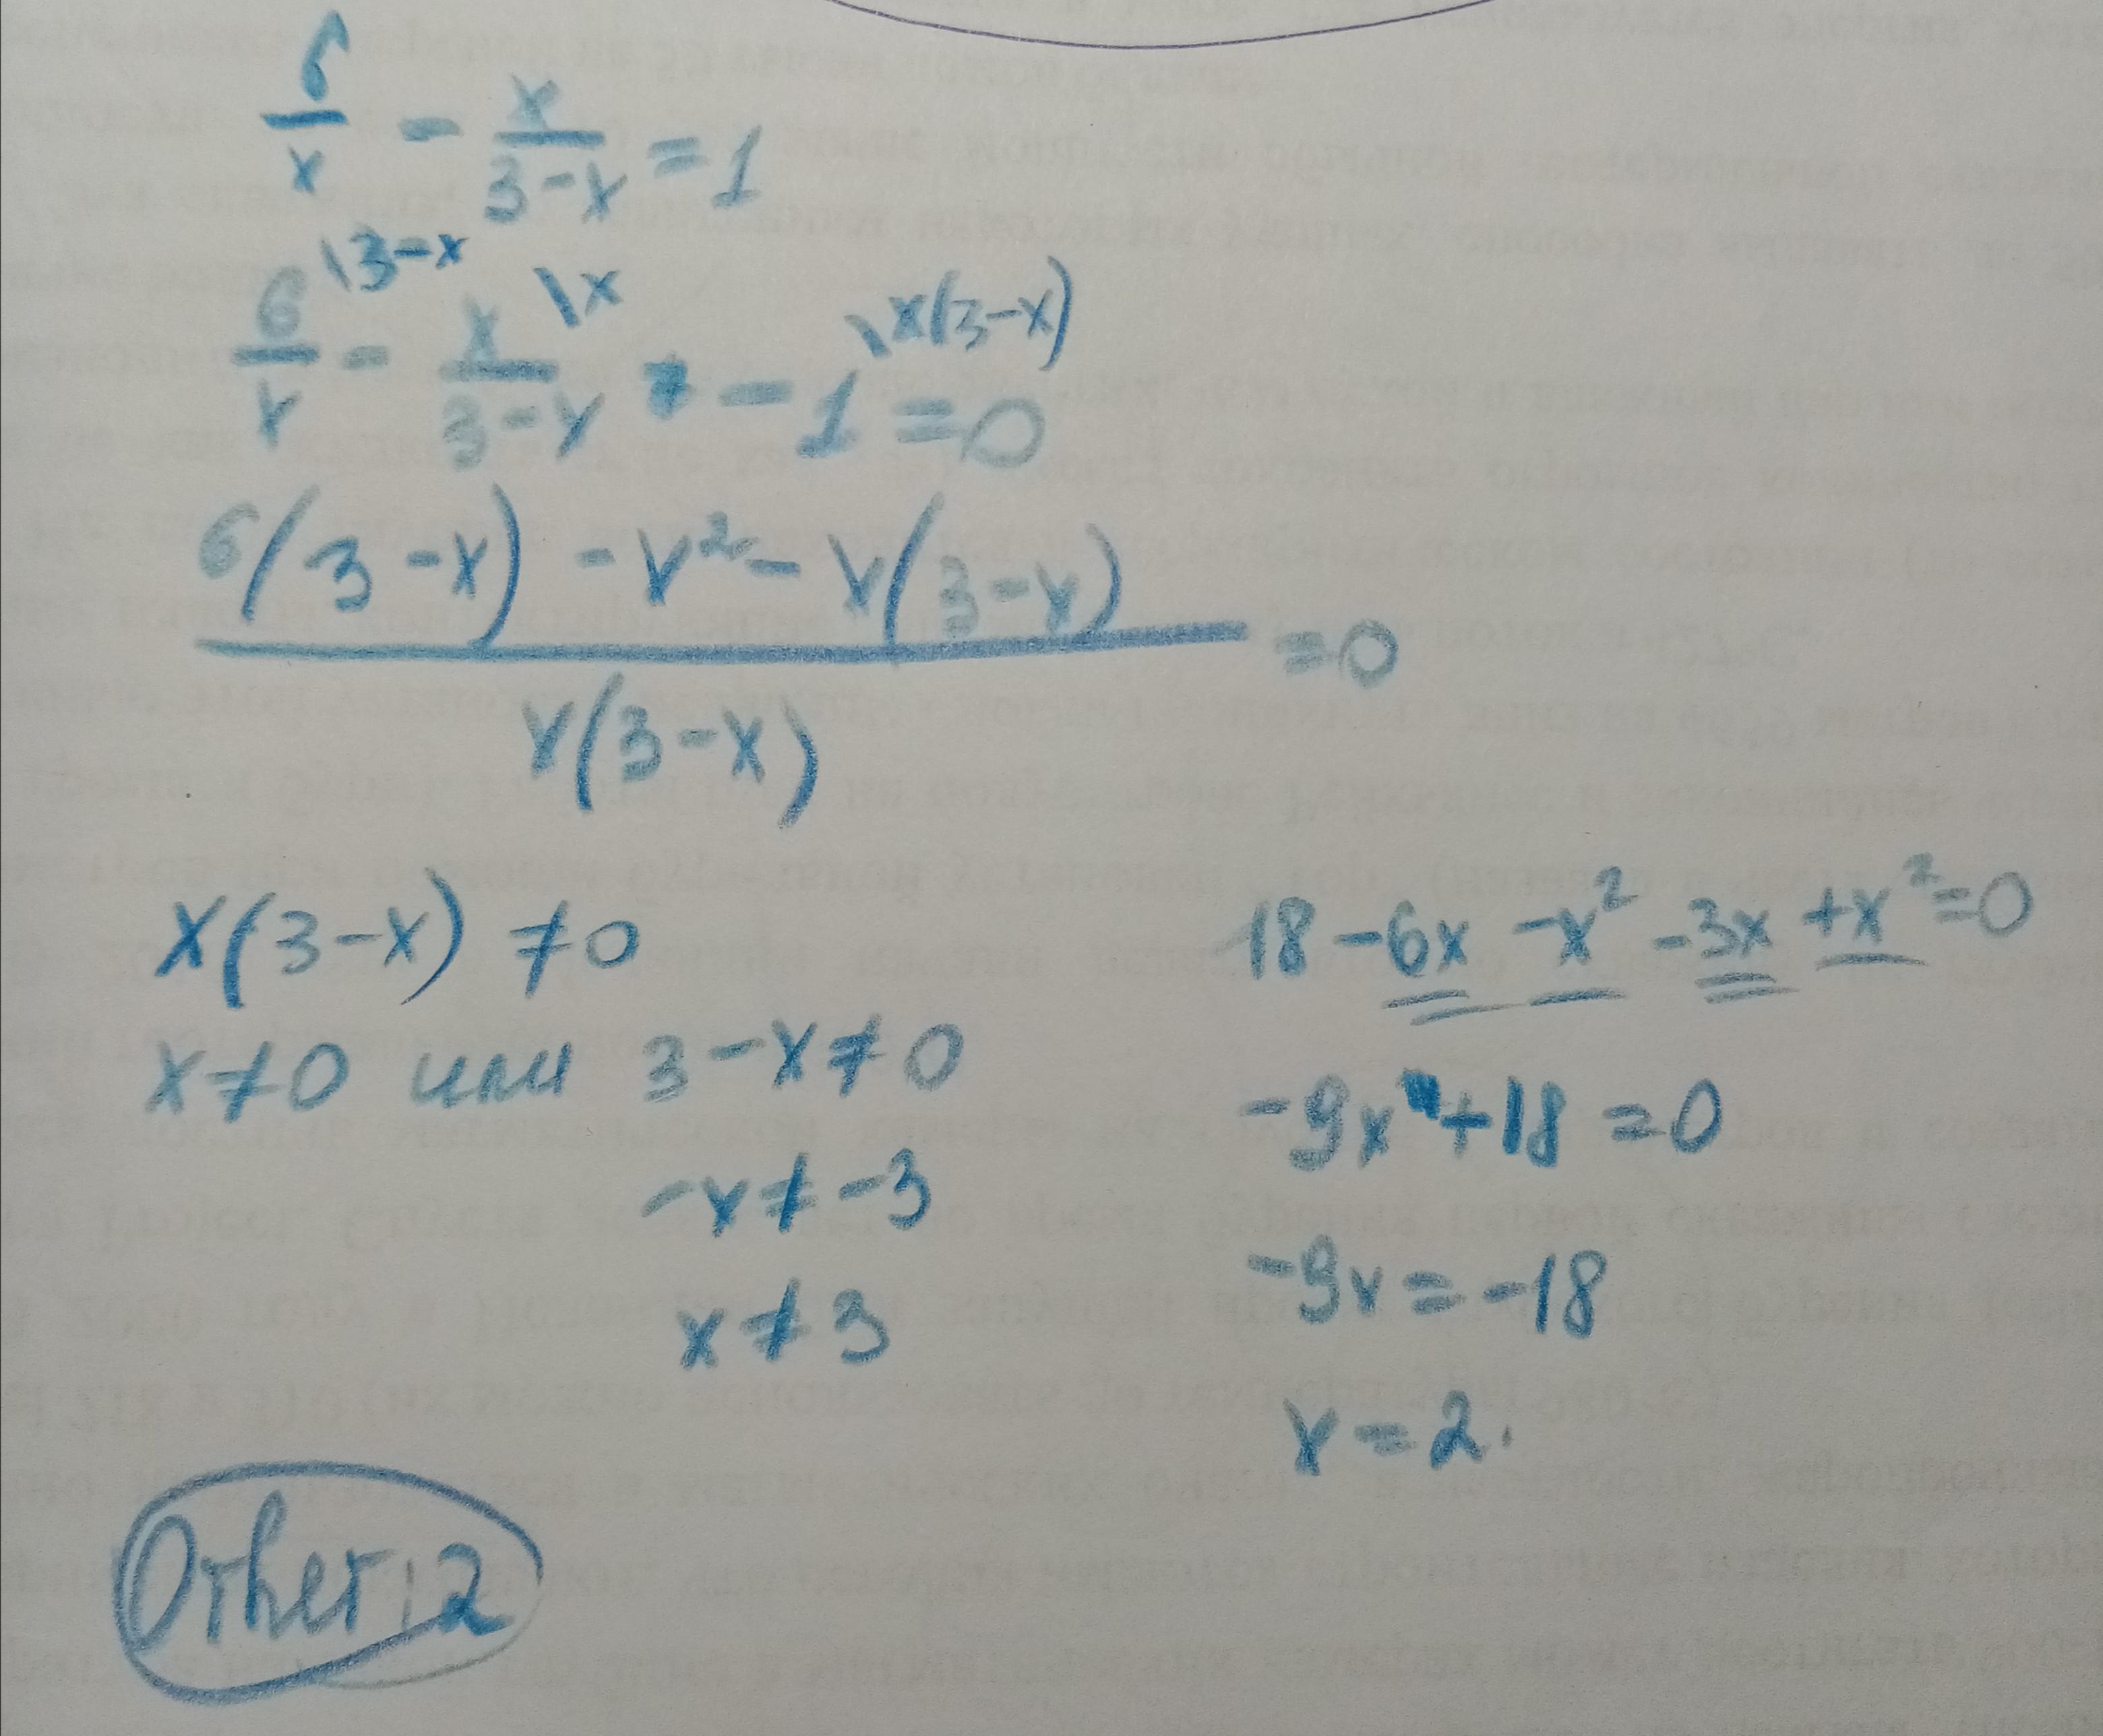 6/x - x/(3-x) = 1
6/x \3-x - x/(3-x) \x - 1 \x(3-x) = 0
(6(3-x) - x² - x(3-x))/(x(3-x)) = 0
x(3-x) ≠ 0
x ≠ 0 или 3-x ≠ 0
-x ≠ -3
x ≠ 3
18 - 6x - x² - 3x + x² = 0
-9x + 18 = 0
-9x = -18
x = 2.
Ответ: 2